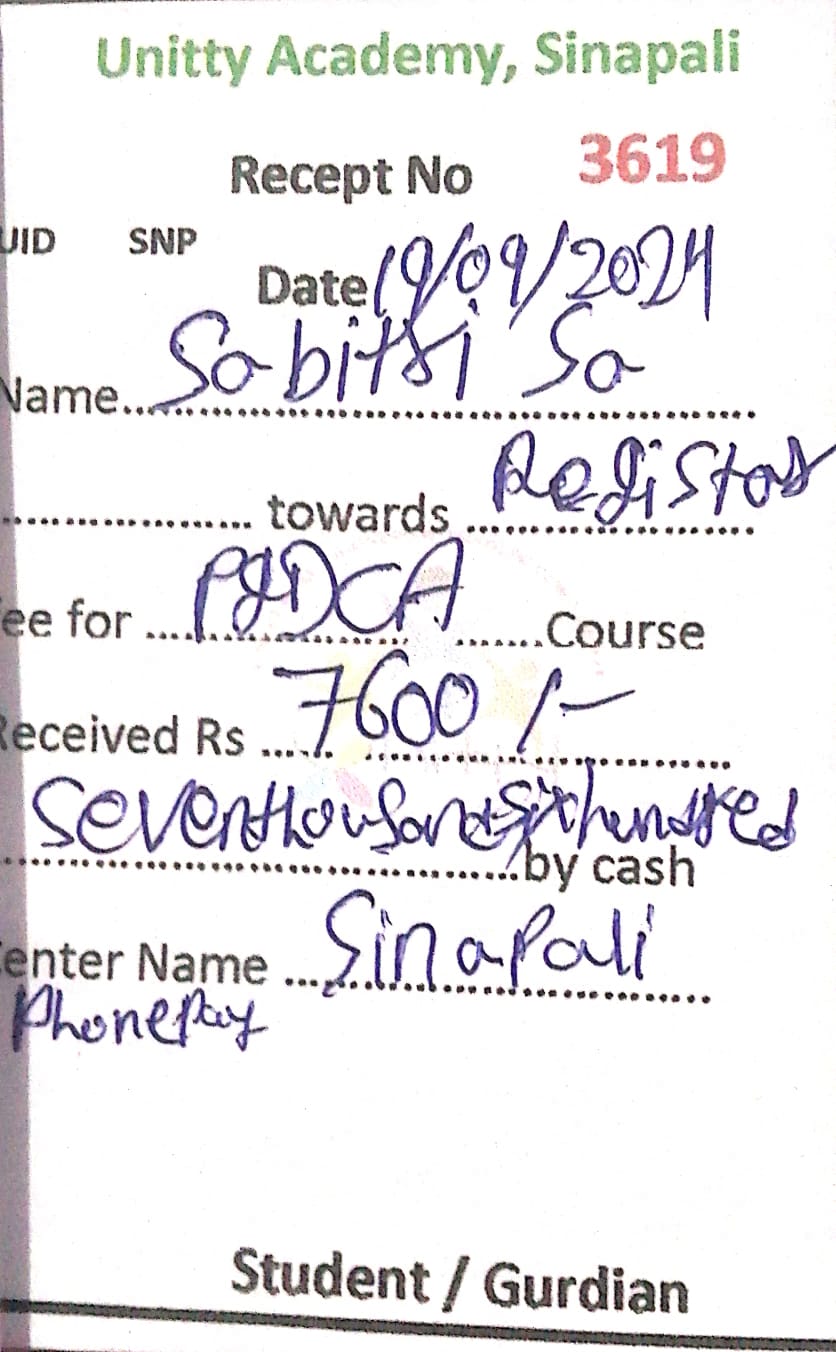 Unitty Academy, Sinapali
Recept No 3619
UID SNP
Date 19/09/2024
Name.. Sabitri Sa
towards Registar
ee for PGDCA Course
Received Rs 7600/-
Seventhousand Sixhundred
by cash
enter Name Sinapali
PhonePay
Student / Gurdian